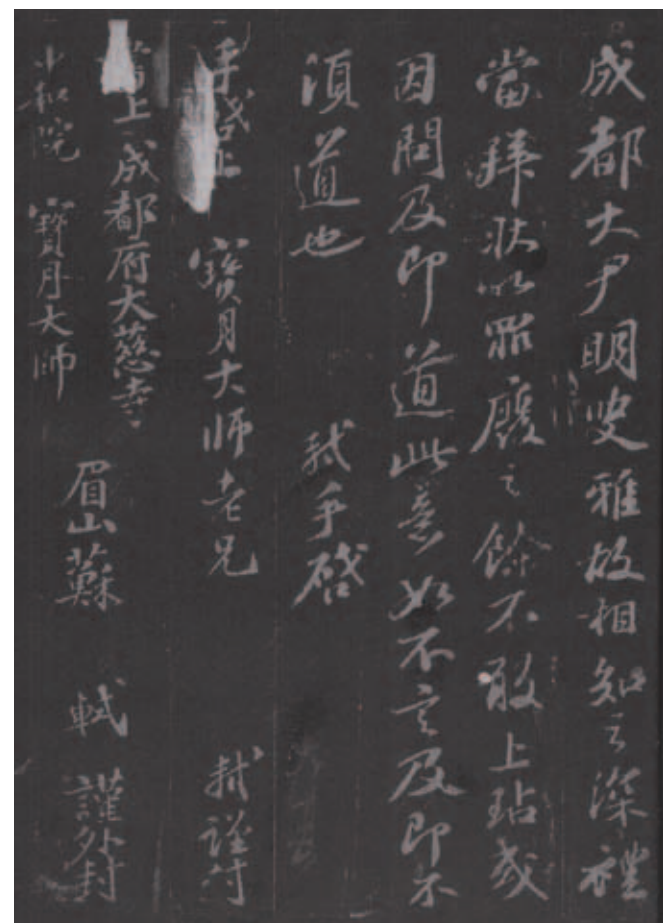 成都大尹明叟雅故相知之深禮
當拜狀以罪廢之餘不敢上玷或
因問及即道此意如不言及即不
須道也 軾手啓
手啓上 寶月大師老兄 軾謹封
上 成都府大慈寺
中和院 寶月大師
眉山蘇 軾 謹外封